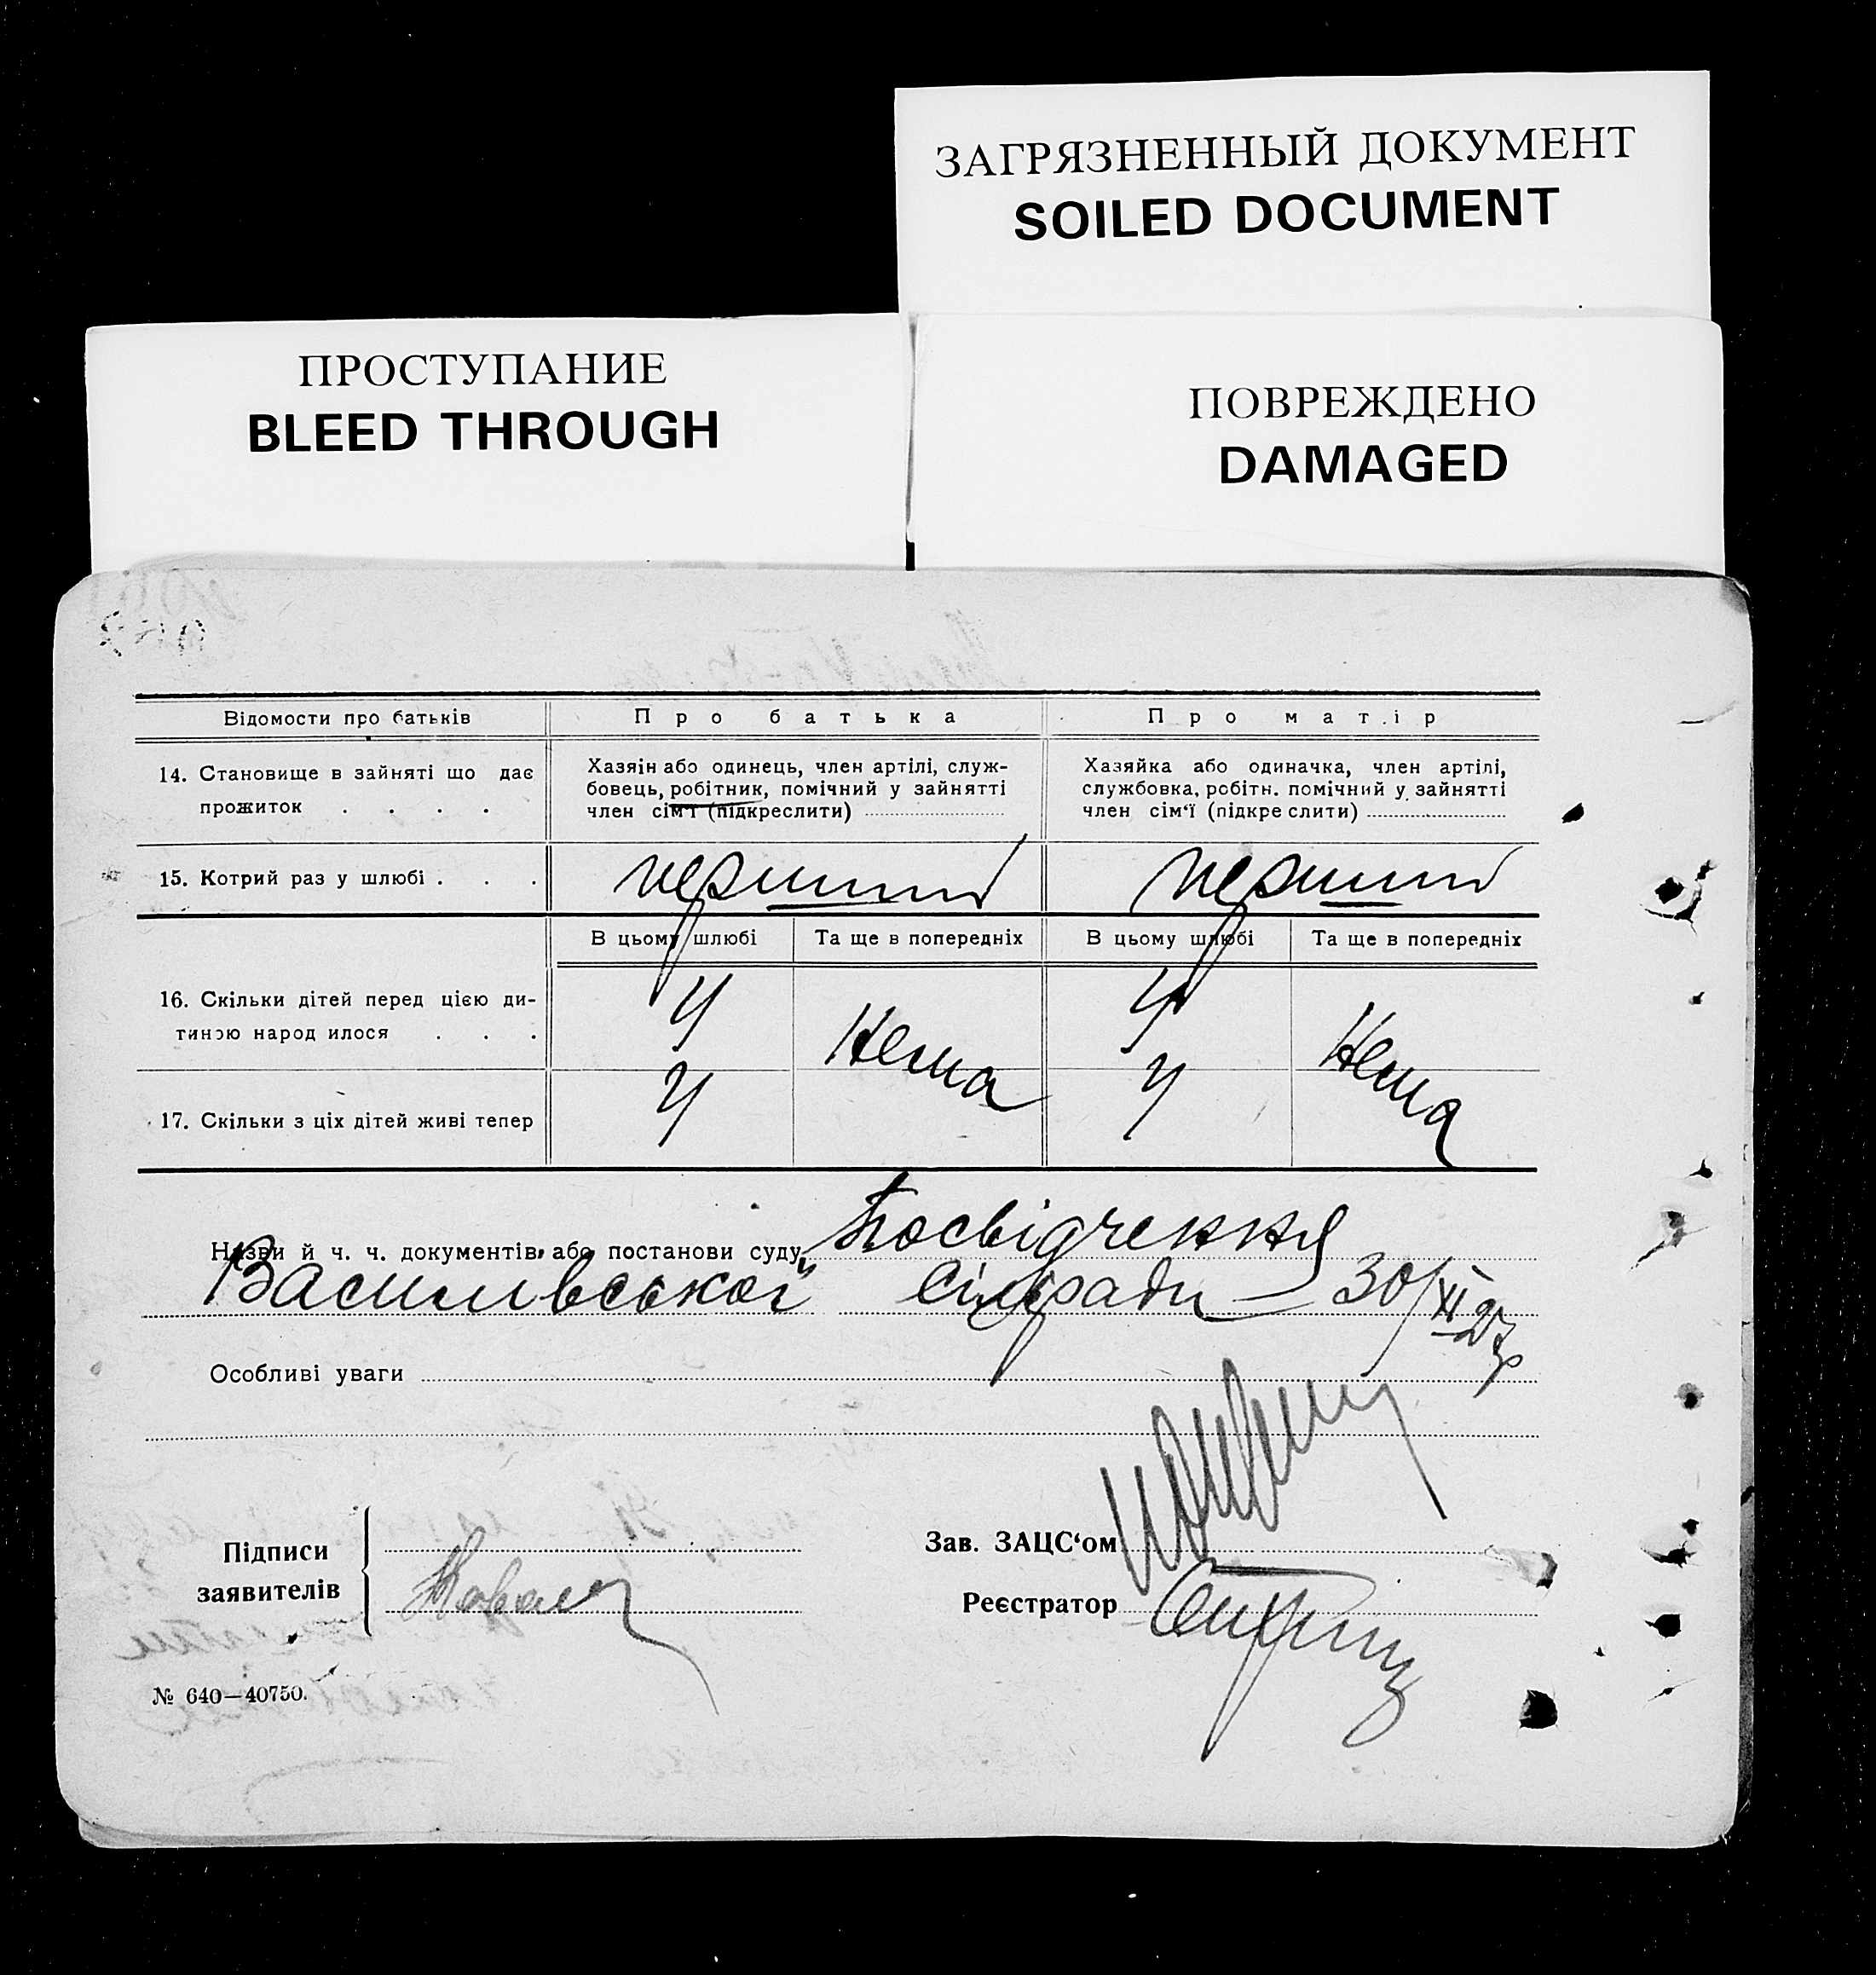 ЗАГРЯЗНЕННЫЙ ДОКУМЕНТ
SOILED DOCUMENT
ПРОСТУПАНИЕ
BLEED THROUGH
ПОВРЕЖДЕНО
DAMAGED
Відомости про батьків
Про батька
Про матір
14. Становище в зайняті що дає
прожиток . . . .
Хазяін або одинець, член артілі, служ-
бовець, робітник, помічний у зайнятті
член сім'ї (підкреслити)
Хазяйка або одиначка, член артілі,
службовка, робітн. помічний у зайнятті
член сім'ї (підкреслити)
15. Котрий раз у шлюбі . . .
перший
перший
В цьому шлюбі
Та ще в попередніх
В цьому шлюбі
Та ще в попередніх
16. Скільки дітей перед цією ди-
тиною народилося . . .
4
Нема
4
Нема
17. Скільки з ціх дітей живі тепер
4
4
Назви й ч. ч. документів або постанови суду Посвідчення
Василівської сільради — 30/XI 27 р
Особливі уваги
Підписи
заявителів
Зав. ЗАЦС'ом
Реєстратор
№ 640—40750.